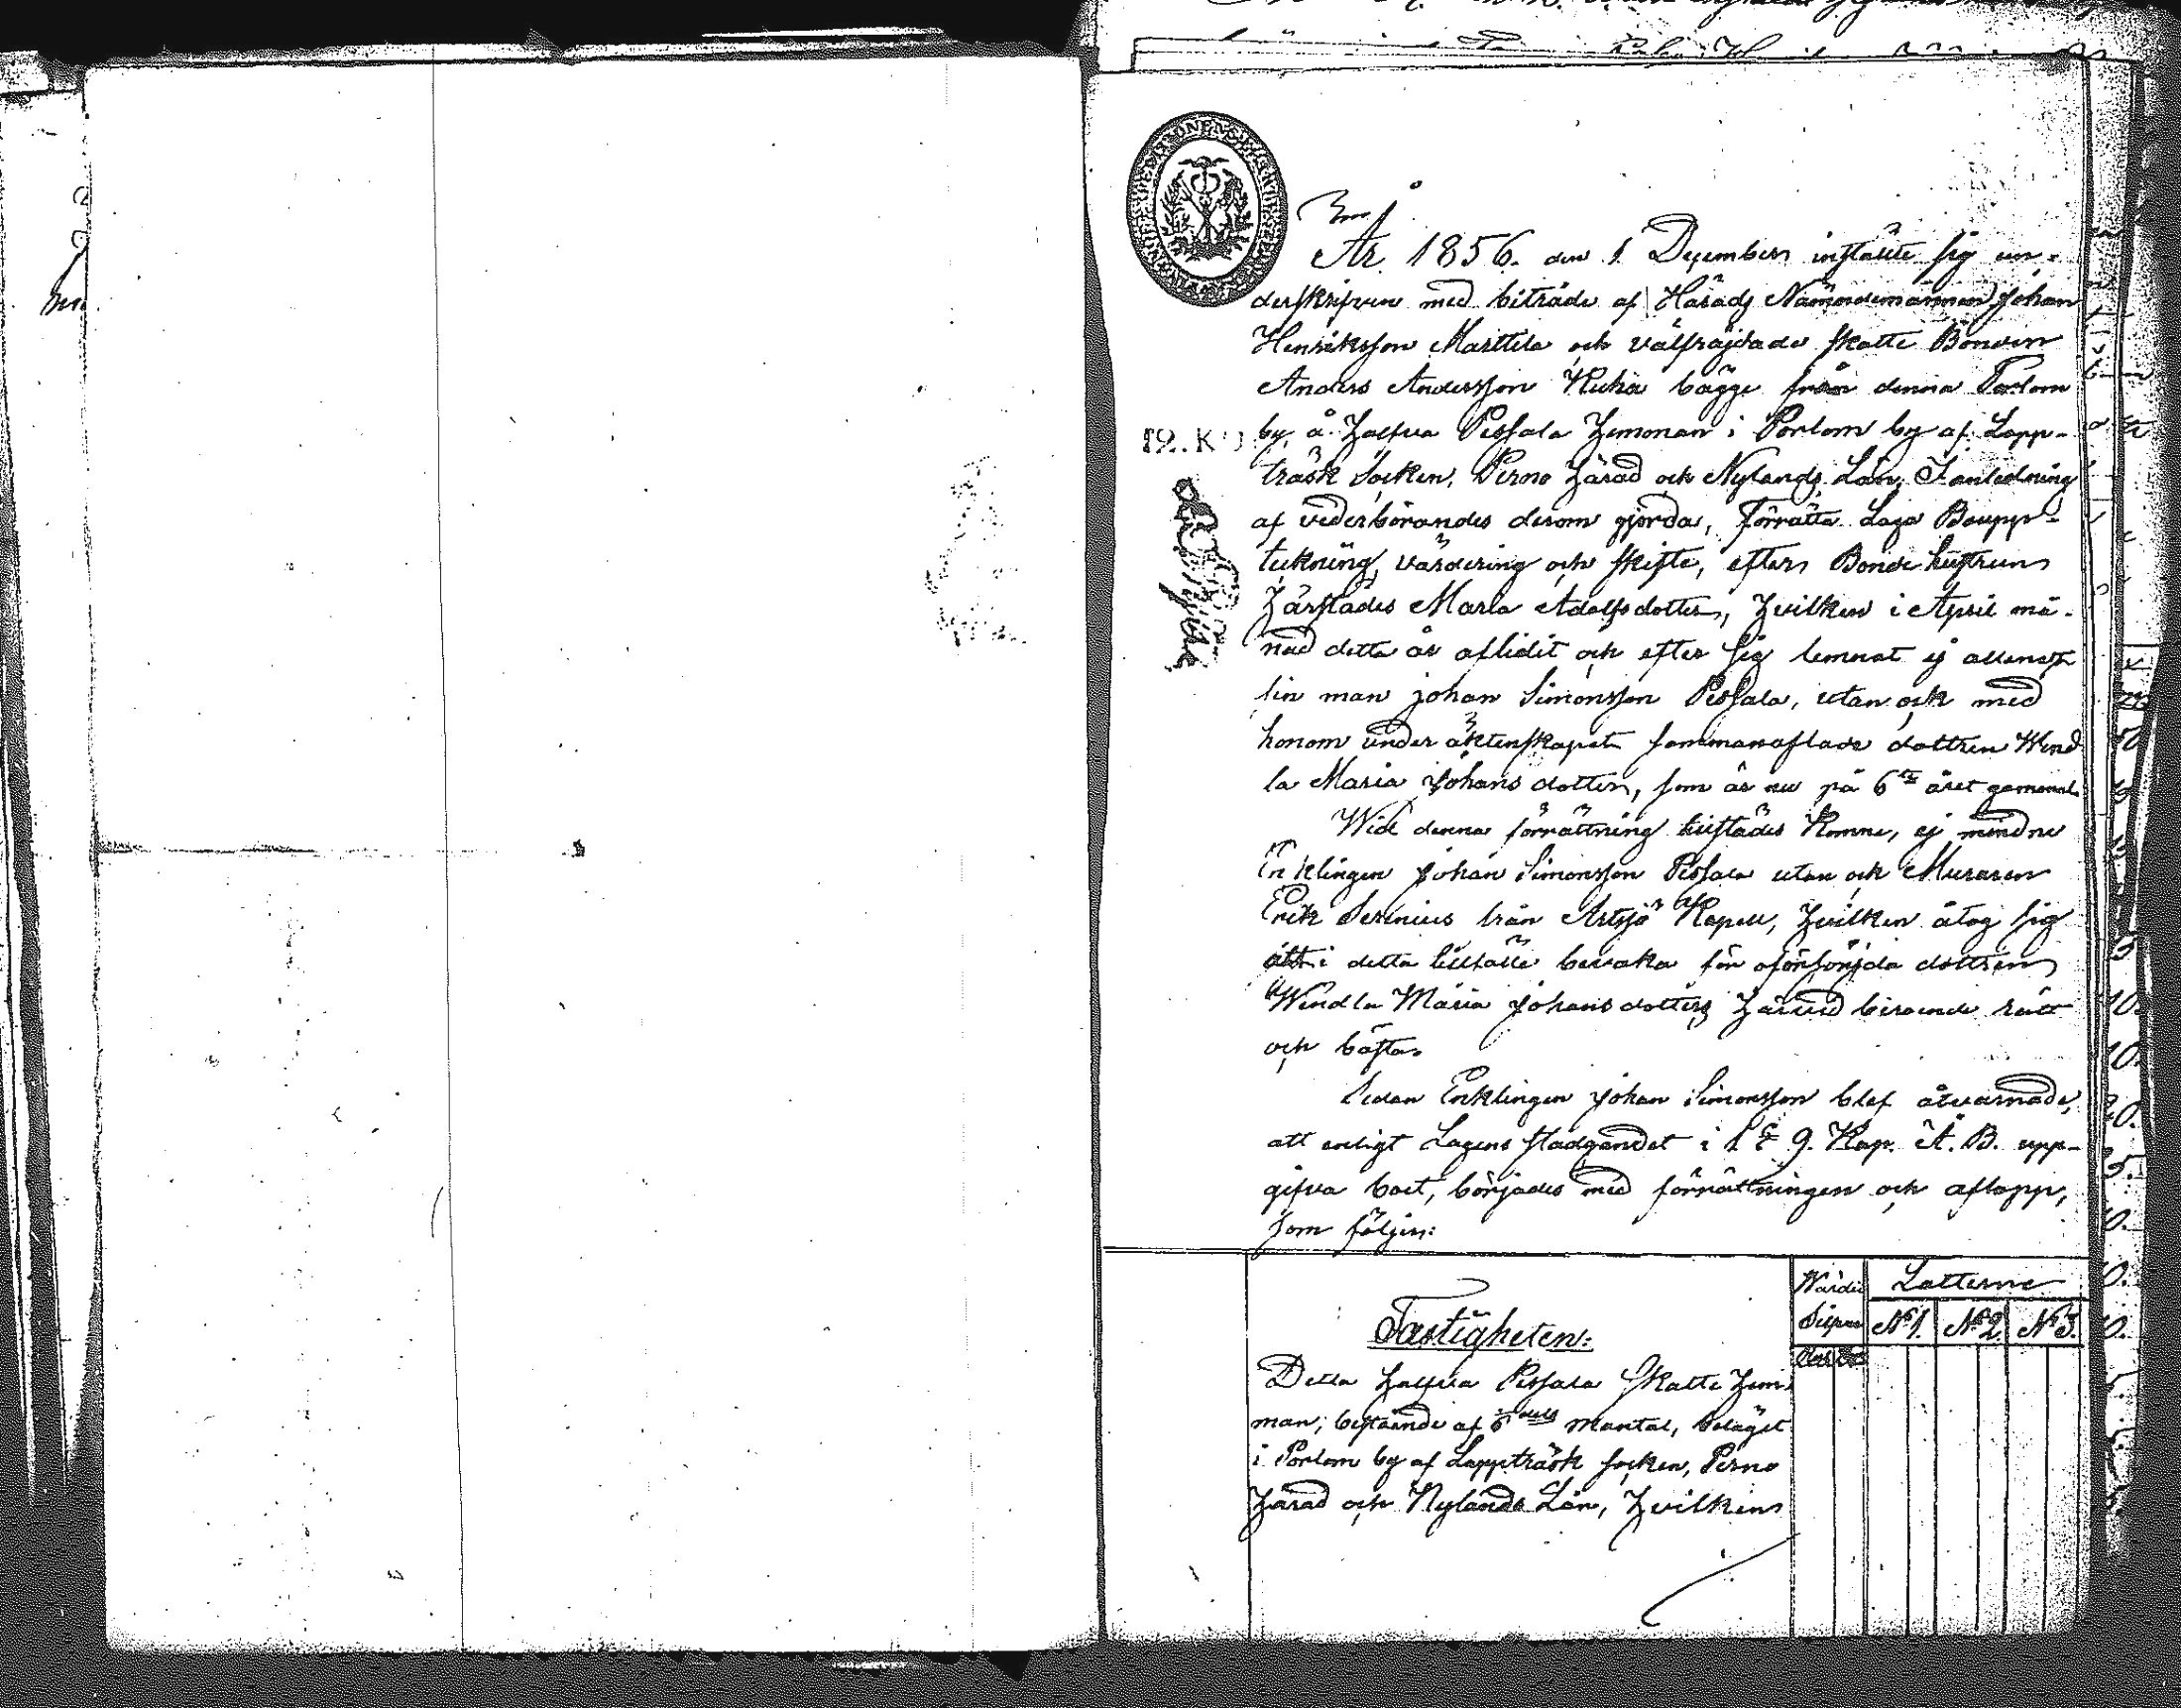 År 1856. den 1 December inställte sig un-
derskrifven med biträde af Härads Nämndemannen Johan
Henriksson Marttila och välfräjdade skatte Bonden
Anders Andersson Kuha bägge från denna Porlom
by, å halfva Pessala hemman i Porlom by af Lapp-
träsk Socken, Perno härad och Nylands Län, I anledning
af vederbörandes derom gjorda, förrätta Laga Boupp-
teckning, värdering och skifte, efter Bonde hustrun
härstädes Maria Adolfsdotter, hvilken i April må-
nad detta år aflidit och efter sig lemnat ej allenast
sin man Johan Simonsson Pessala, utan och med
honom under äktenskapet sammanaflade dottren Wend
la Maria Johansdotter, som är nu på 6te året gammal.
Wid denna förrättning tillstädes Komne, ej mindre
Enklingen Johan Simonsson Pessala utan och Muraren
Erik Serenius från Artsjö Kapell, hvilken åtog sig
att i detta tillfälle bevaka för oförsörjda dottren
Wendla Maria Johansdotters härvid beroende rätt
och bästa.
Sedan Enklingen Johan Simonsson blef åtvarnad,
att enligt Lagens stadgandet i 1 § 9. Kap. Ä. B. upp-
gifva boet, börjades med förrättningen och aflopp,
som följer:
Värde
Lotterne
Silfver
No 1. No 2. No 3.
Fastigheten:
Detta halfva Pessala Skatte hem
man, bestående af mantal, beläget
i Porlom by af Lappträsk socken, Perno
härad och Nylands Län, hvilkens
12. KO